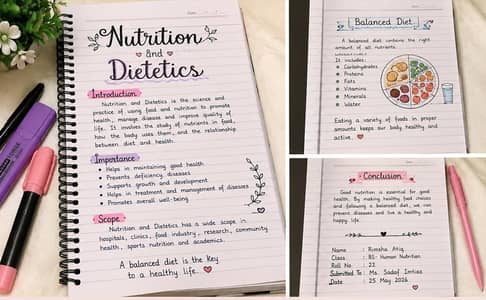 Nutrition
and
Dietetics
Introduction
Nutrition and Dietetics is the science and
practice of using food and nutrition to promote
health, manage disease and improve quality of
life. It involves the study of nutrients in food,
how the body uses them, and the relationship
between diet and health.
Importance
• Helps in maintaining good health
• Prevents deficiency diseases
• Supports growth and development
• Helps in treatment and management of diseases
• Promotes overall well-being
Scope
Nutrition and Dietetics has a wide scope in
hospitals, clinics, food industry, research, community
health, sports nutrition and academics.
A balanced diet is the key
to a healthy life.
Balanced Diet
A balanced diet contains the right
amount of all nutrients.
It includes:
• Carbohydrates
• Proteins
• Fats
• Vitamins
• Minerals
• Water
Eating a variety of foods in proper
amounts keeps our body healthy and
active.
Conclusion
Good nutrition is essential for good
health. By making healthy food choices
and following a balanced diet, we can
prevent diseases and live a healthy and
happy life.
Name : Rimsha Atiq
Class : BS- Human Nutrition
Roll No. : 22
Submitted To : Ms. Sadaf Imtiaz
Date : 25 May 2026